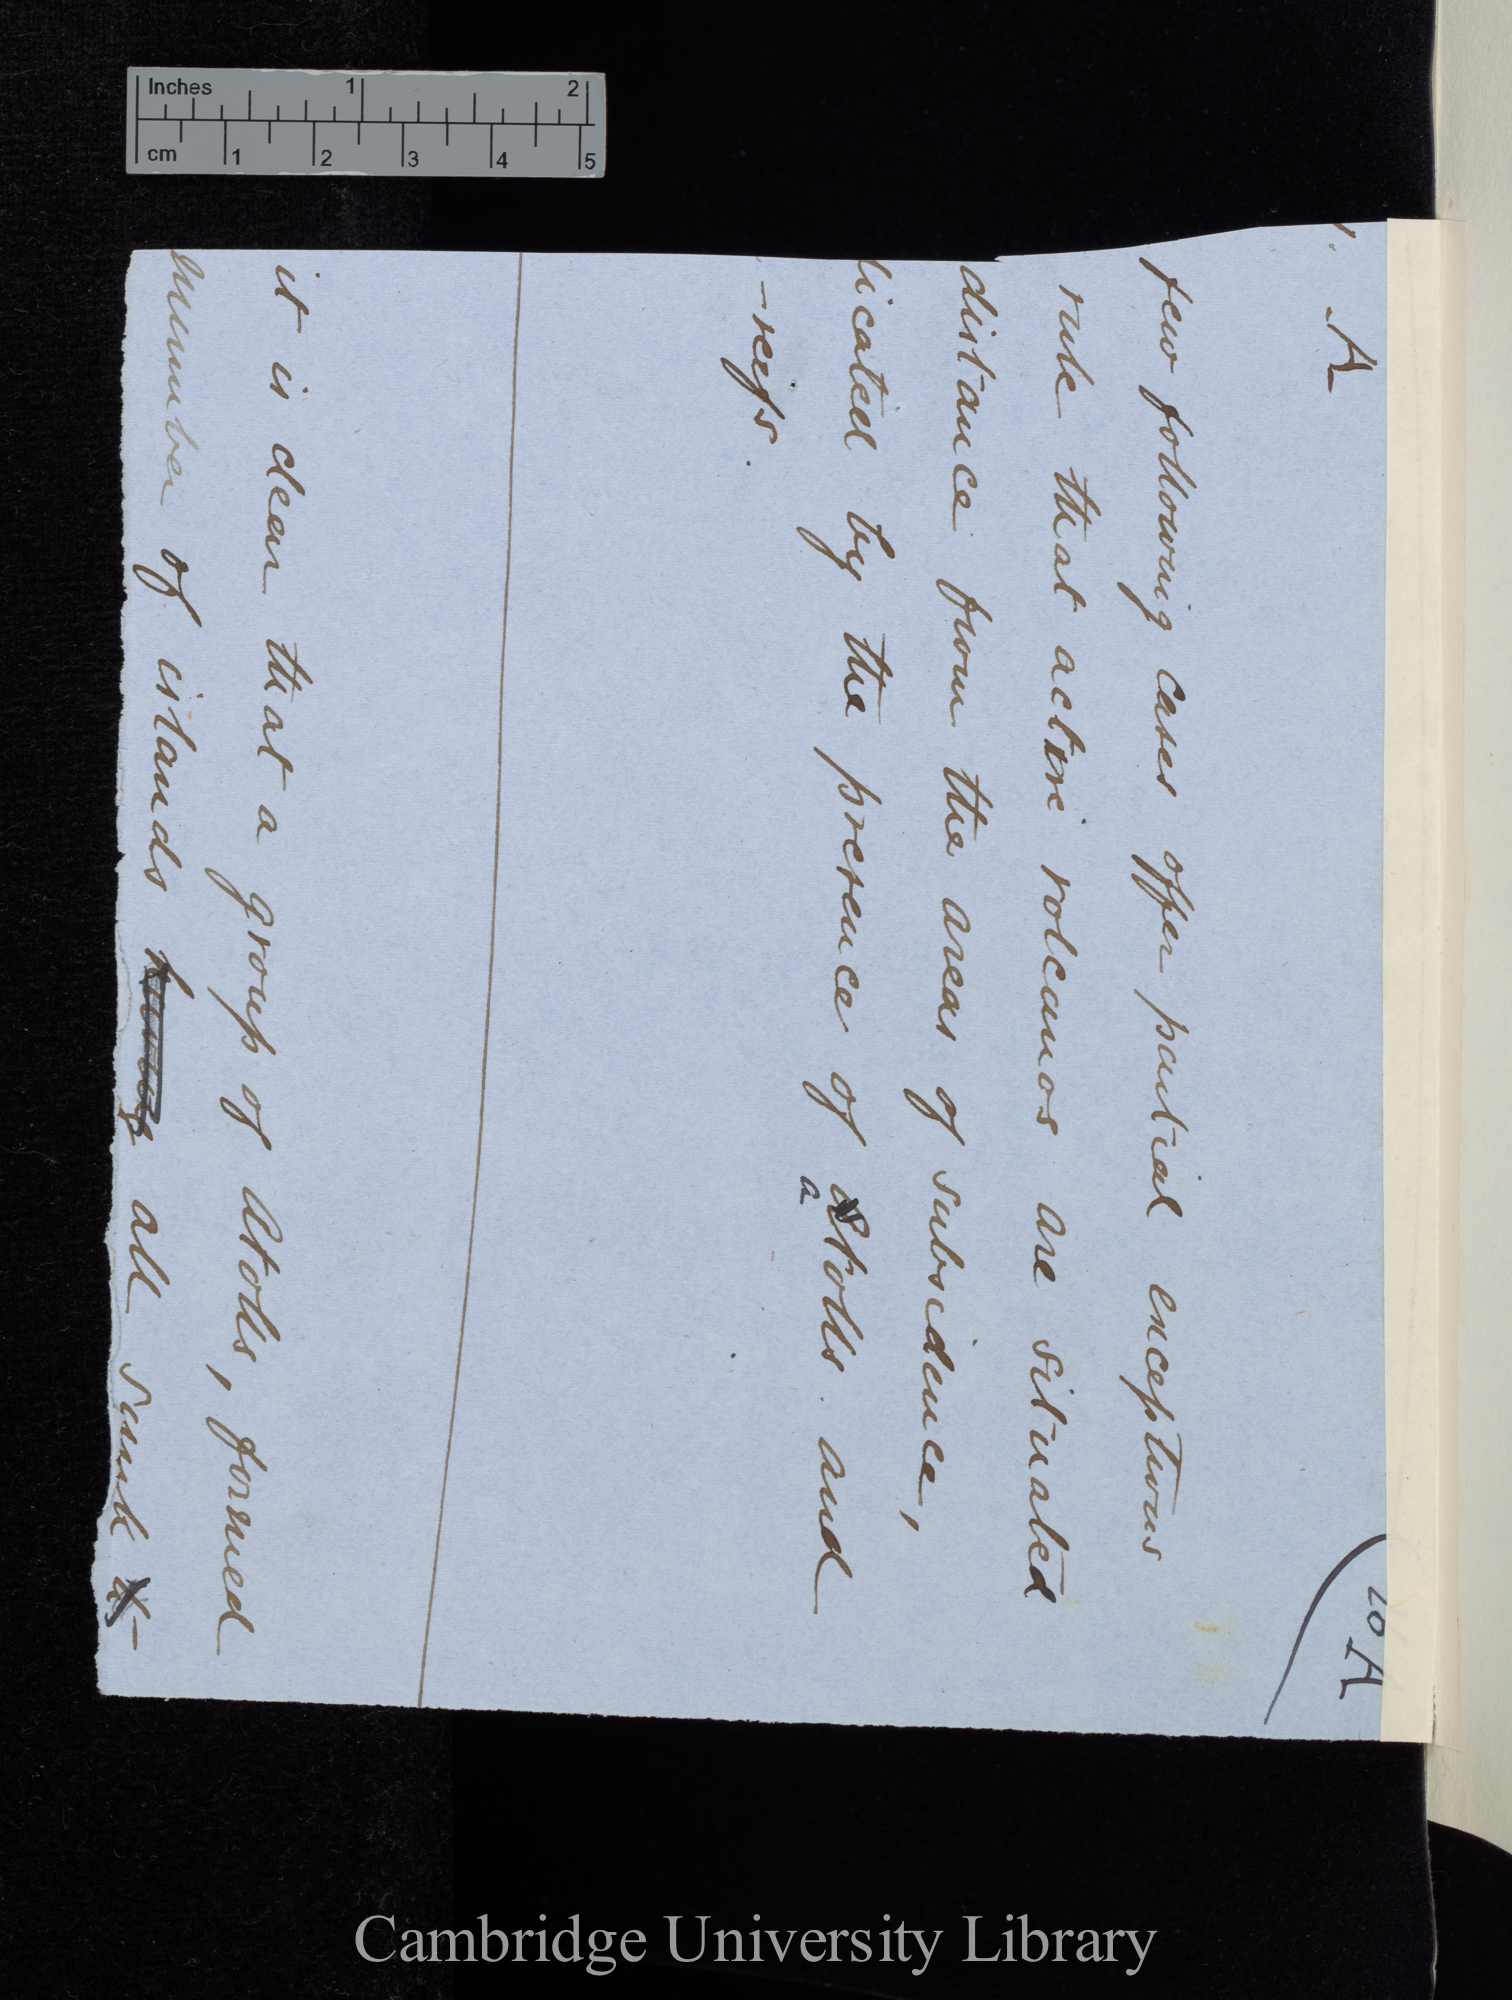 Inches 1 2
cm 1 2 3 4 5
A
10 A
few following cases offer partial exceptions
rule that active volcanos are situated
distance from the areas of subsidence,
licated by the presence of atolls and
a
-reefs.
it is clear that a group of Atolls, formed
number of islands having all sunk
Cambridge University Library